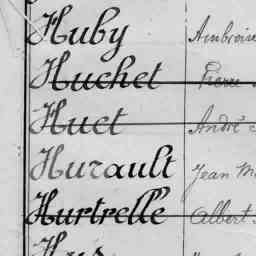 Huby Ambroise
Huchet Pierre
Huet André
Hurault Jean M
Hurtrelle Albert